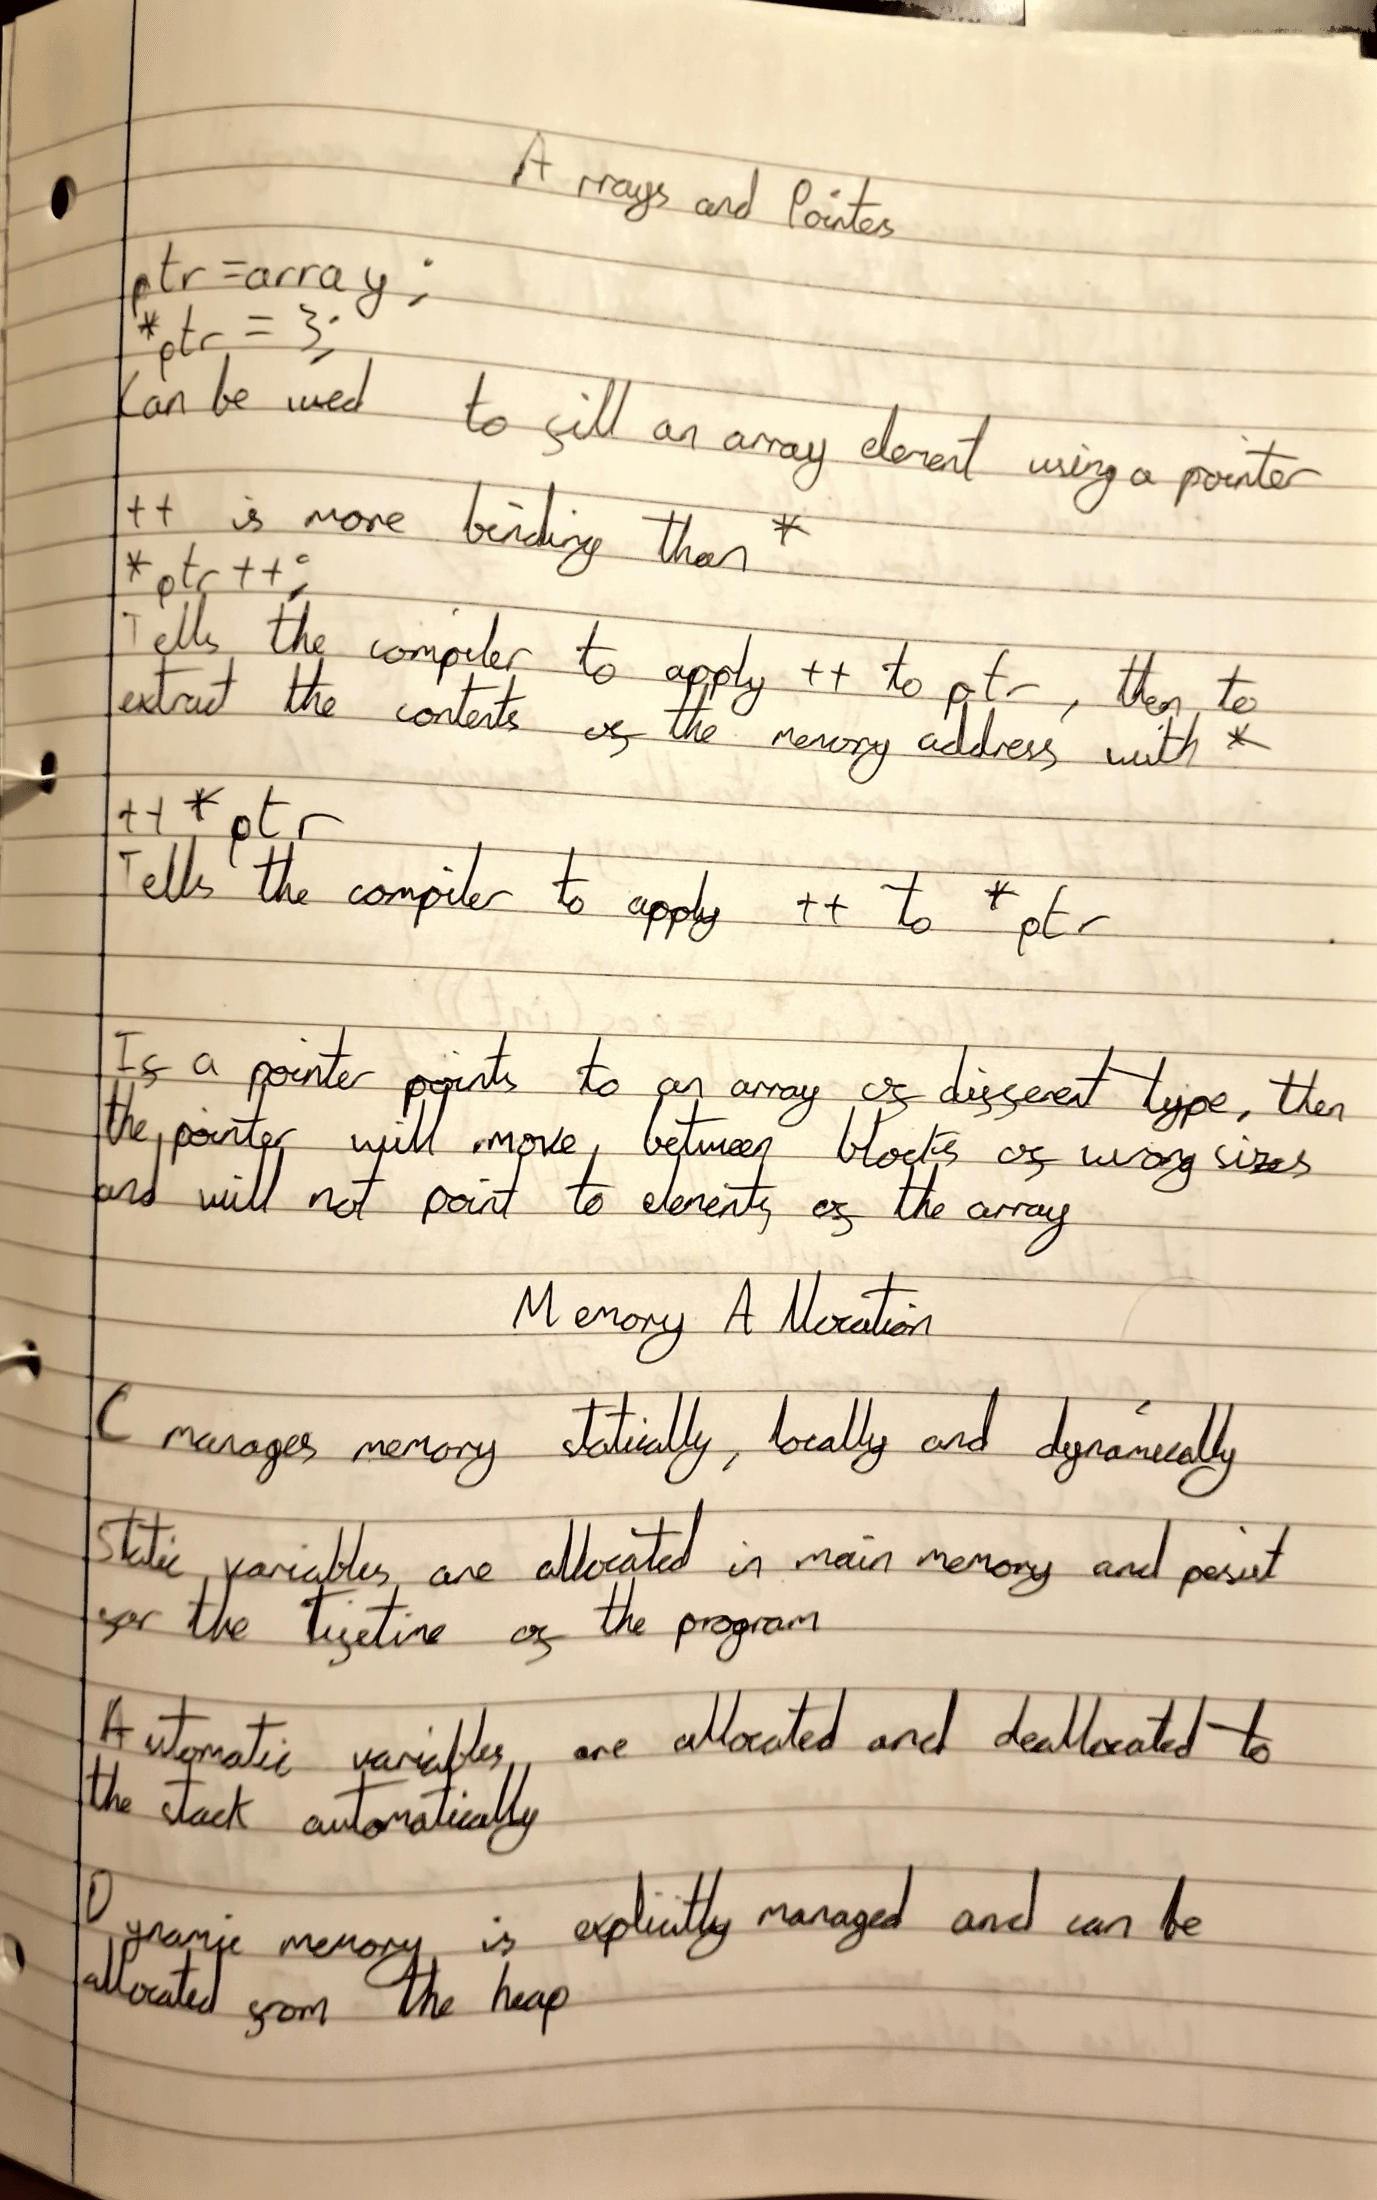 Arrays and Pointes
ptr=array;
*ptr = 3;
Can be used to fill an array element using a pointer
++ is more binding than *
*ptr++;
Tells the compiler to apply ++ to ptr, then to
extract the contents of the memory address with *
++*ptr
Tells the compiler to apply ++ to *ptr
If a pointer points to an array of different type, then
the pointer will move between blocks of wrong sizes
and will not point to elements of the array
Memory Allocation
C manages memory statically, locally and dynamically
Static variables are allocated in main memory and persist
for the lifetime of the program
Automatic variables are allocated and deallocated to
the stack automatically
Dynamic memory is explicitly managed and can be
allocated from the heap